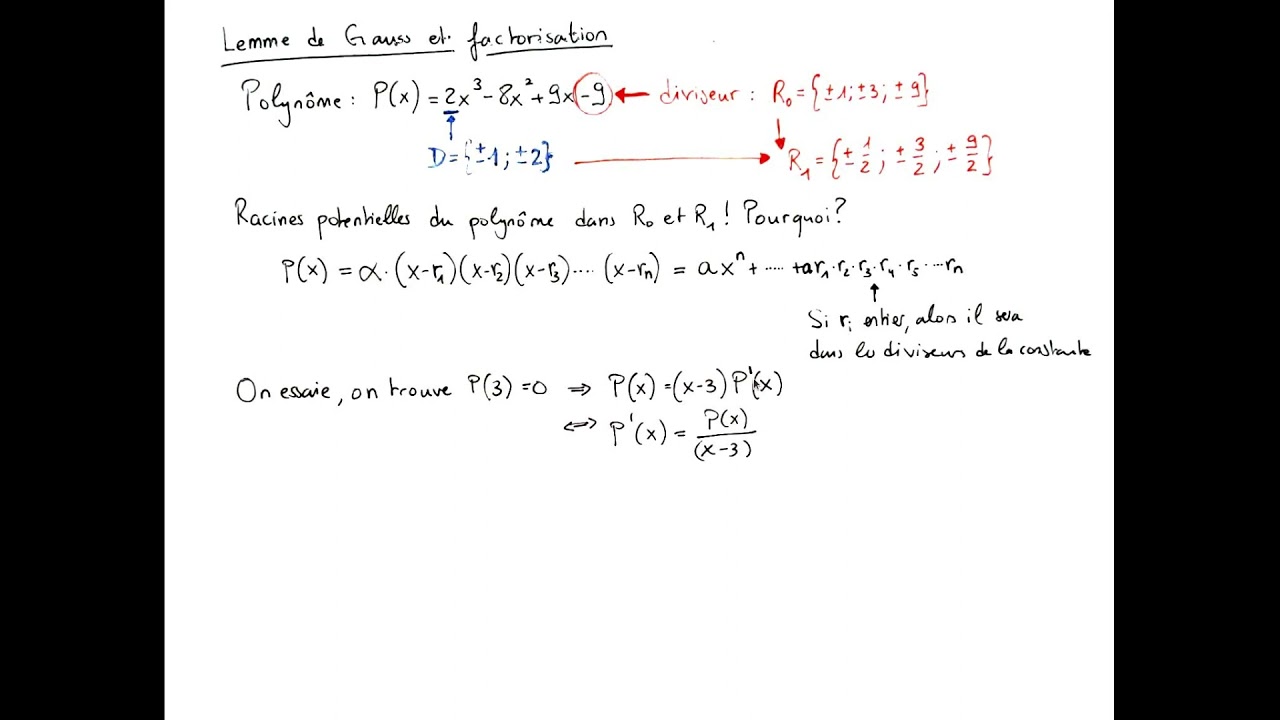 Lemme de Gauss et factorisation
Polynôme : P(x) = 2x³ - 8x² + 9x - 9 ← diviseur : R₀ = {±1; ±3; ±9}
D = {±1; ±2} → R₁ = {± 1/2 ; ± 3/2 ; ± 9/2}
Racines potentielles du polynôme dans R₀ et R₁ ! Pourquoi ?
P(x) = α · (x-r₁)(x-r₂)(x-r₃) .... (x-rₙ) = axⁿ + ..... + ar₁ · r₂ · r₃ · r₄ · r₅ · ... rₙ
Si rᵢ entier, alors il sera
dans les diviseurs de la constante
On essaie, on trouve P(3) = 0 ⇒ P(x) = (x-3) P'(x)
⇔ P'(x) = P(x)/(x-3)